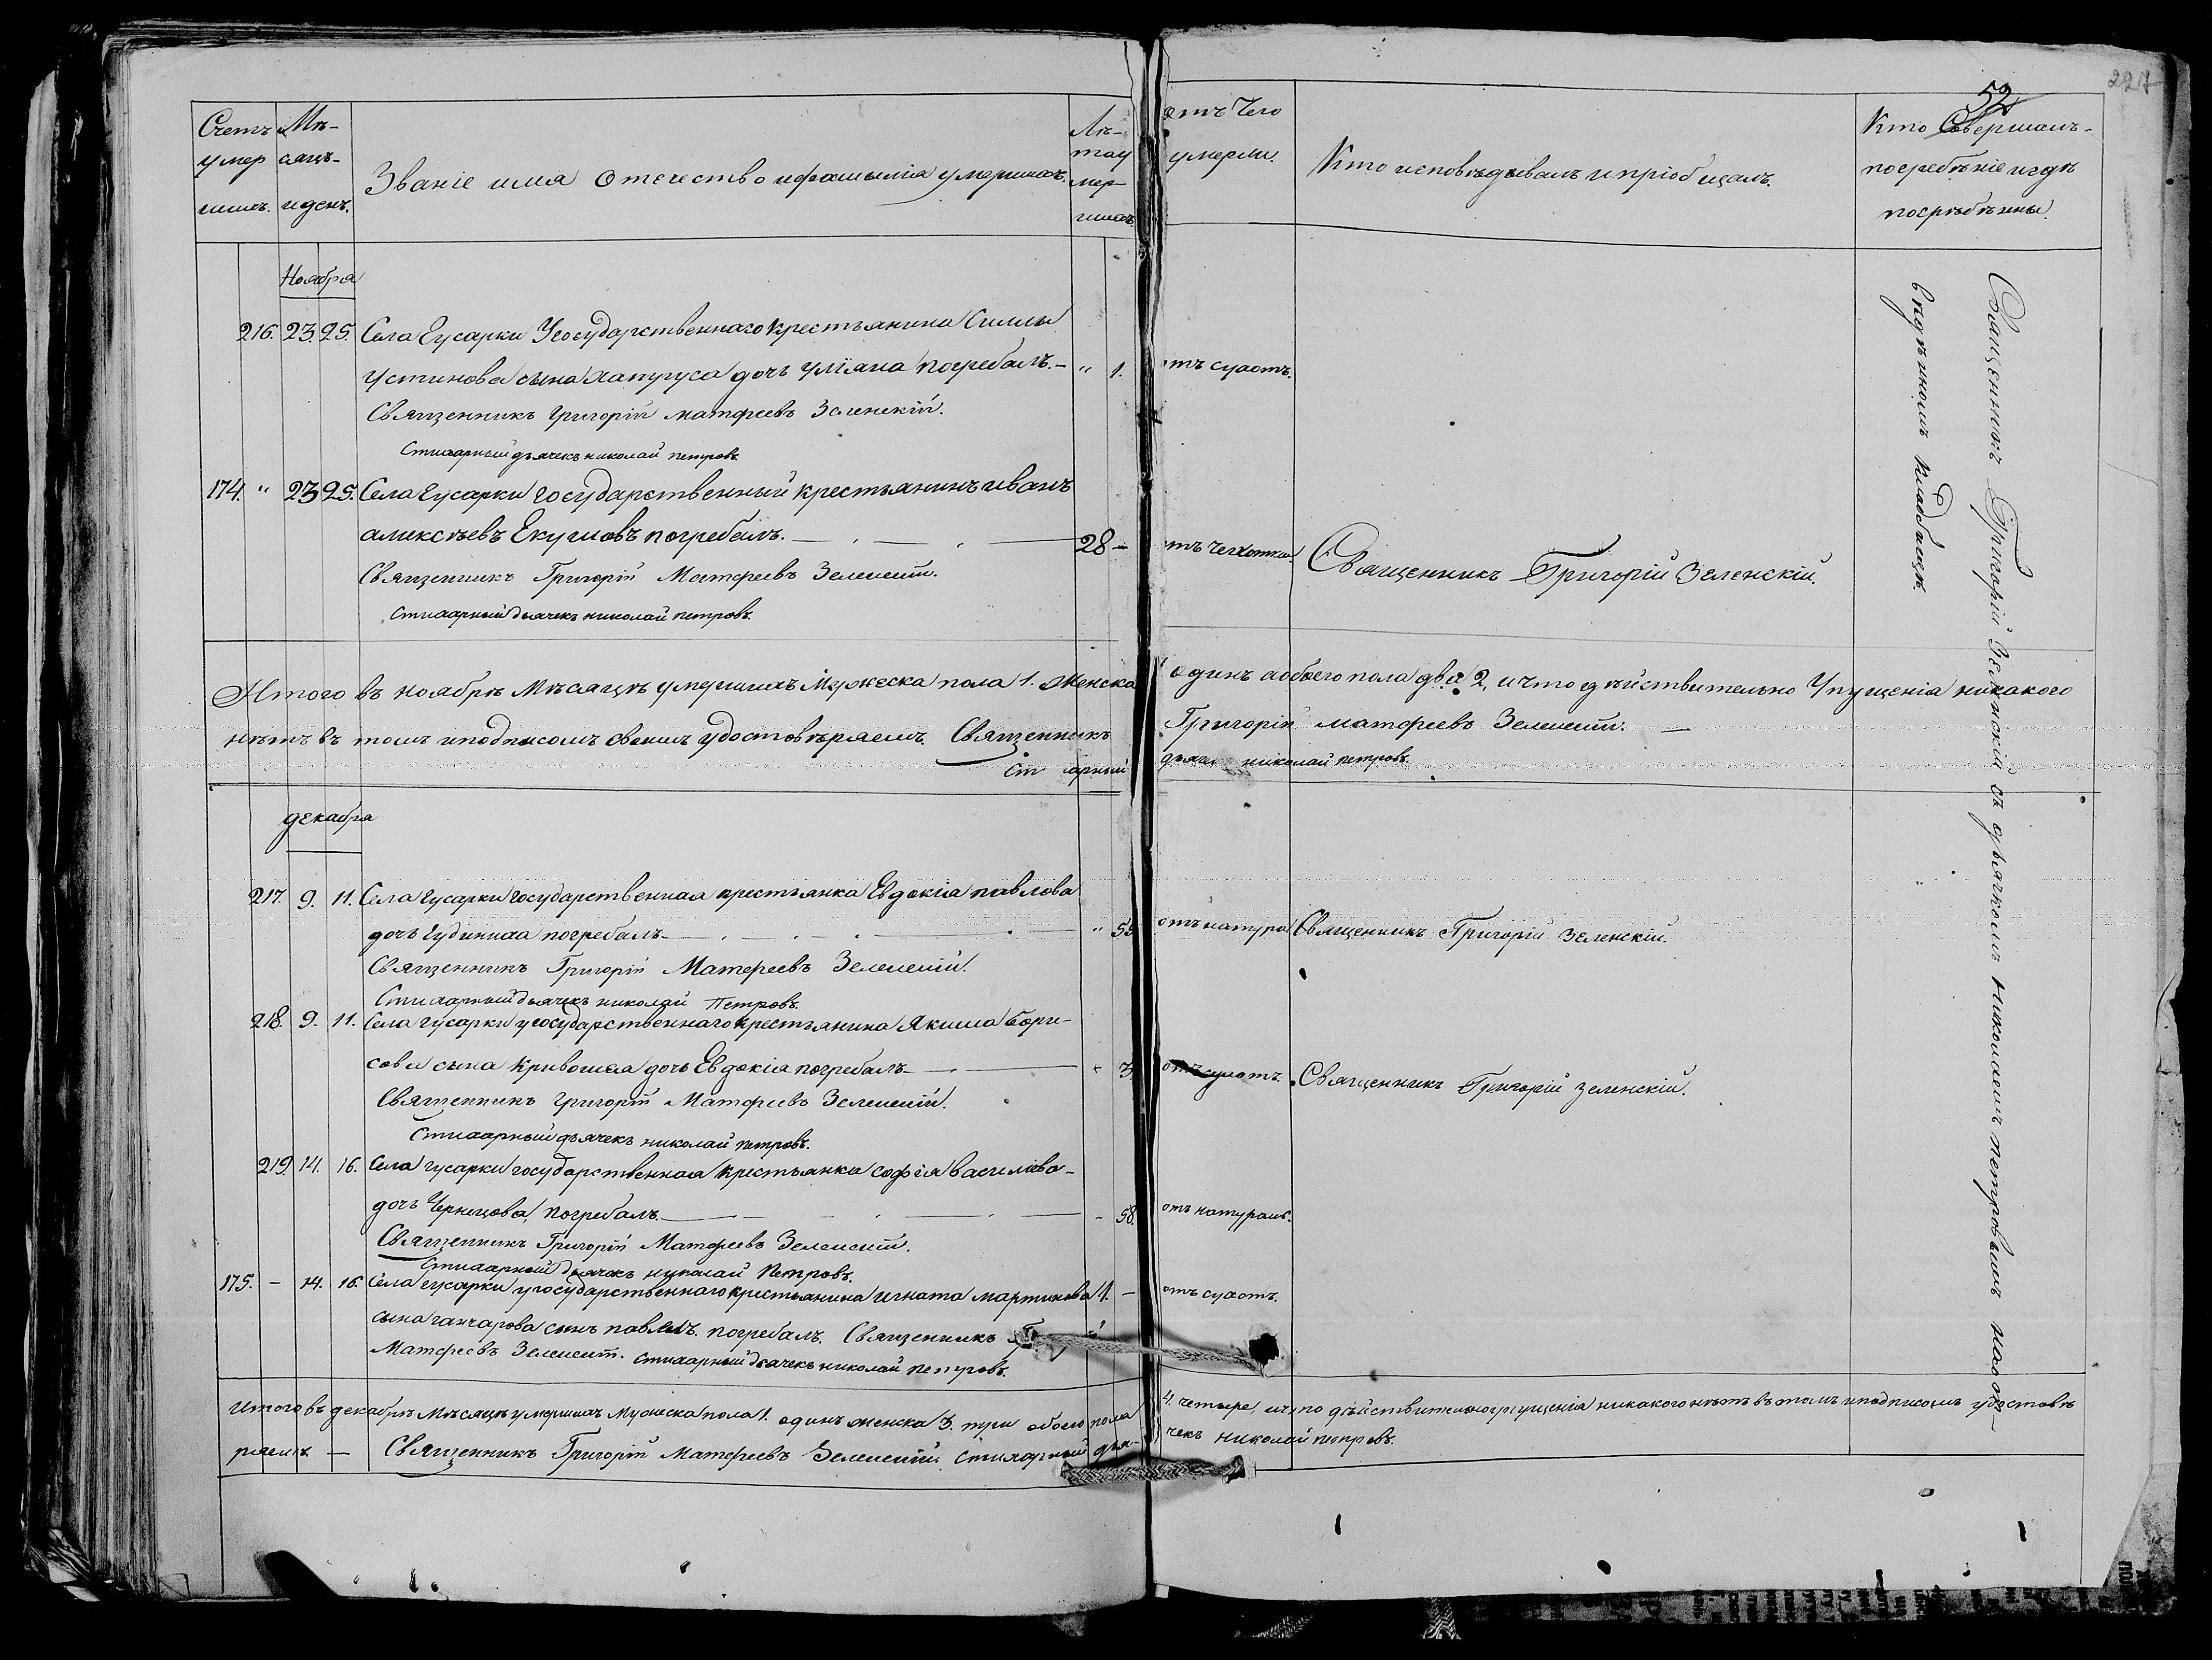 221
52
Счетъ умершихъ.
Мѣсяцъ и день.
Званіе имя отечество и фамылія умершихъ.
Лѣта умершихъ
отъ чего умерли.
Кто исповѣдывалъ и пріобщалъ.
Кто совершалъ погребѣніе и гдѣ погрѣбѣнны.
Ноября
216. 23. 25. Села Гусарки у государственнаго крестьянина Силлы
Устинова сына дочь Уліяна погребалъ. — " 1. отъ сухотъ.
Священникъ Григорій Матфеевъ Зеленскій.
Стихарный дьячекъ николай петровъ
174. " 23 25. Села Гусарки государственный крестьянинъ иванъ
аликсѣевъ Екушовъ погребалъ. — 28 — отъ чехотки. Священникъ Григорій Зеленскій.
Священникъ Григорій Матфеевъ Зеленскій.
Стихарный дьячекъ николай петровъ.
Итого въ ноябрѣ мѣсяцѣ умершихъ мужеска пола 1. женска одинъ а обоего пола два 2, и что дѣйствительно упущенія никакого
нѣтъ въ томъ и подписомъ своимъ удостовѣряемъ. Священникъ Григорій матфеевъ Зеленскій. —
Стихарный дьячекъ николай петровъ.
декабря
217. 9. 11. Села Гусарки государственная крестьянка Евдокія павлова
дочь погребалъ — " 55 отъ натура Священникъ Григорій Зеленскій.
Священникъ Григорій Матфеевъ Зеленскій.
Стихарный дьячекъ николай Петровъ.
218. 9. 11. Села гусарки у государственнаго крестьянина Якима Бори-
сова сына Кривошея дочь Евдокія погребалъ — " 3. отъ сухотъ. Священникъ Григорій Зеленскій.
Священникъ Григорій Матфеевъ Зеленскій.
Стихарный дьячекъ николай петровъ.
219. 14. 16. Села гусарки государственная крестьянка софія василіева-
дочь Чернецова, погребалъ. — - 58. отъ натураль.
Священникъ Григорій Матфеевъ Зеленскій.
Стихарный дьячекъ николай Петровъ.
175. — 14. 16. Села гусарки у государственнаго крестьянина игната мартинова 1. — отъ сухотъ.
сына ганчарова сынъ павелъ. погребалъ. Священникъ
Матфеевъ Зеленскій. стихарный дьячекъ николай петровъ.
Итого въ декабрѣ мѣсяцѣ умершихъ мужеска пола 1. одинъ женска 3. три обоего пола 4. четыре, и что дѣйствительно упущенія никакого нѣтъ въ томъ и подписомъ удостовѣ
ряемъ — Священникъ Григорій Матфеевъ Зеленскій. стихарный дья- чекъ николай петровъ.
Священникъ Григорій Зеленскій съ дьячкомъ николаемъ петровымъ на от-
вѣдѣнномъ кладбищѣ.